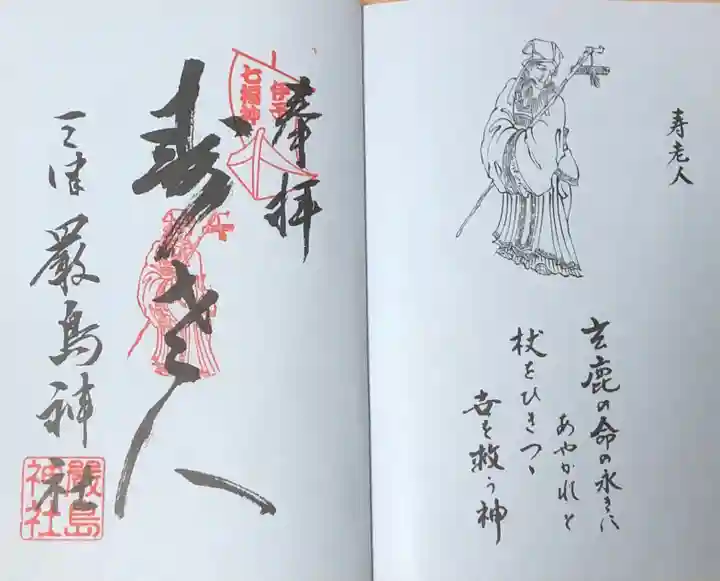 寿老人
玄鹿の命の永きに
あやかれと
杖をひきつゝ
世を救う神
奉拝
伊予
七福神
寿老人
三津 厳島神社
嚴島
神社